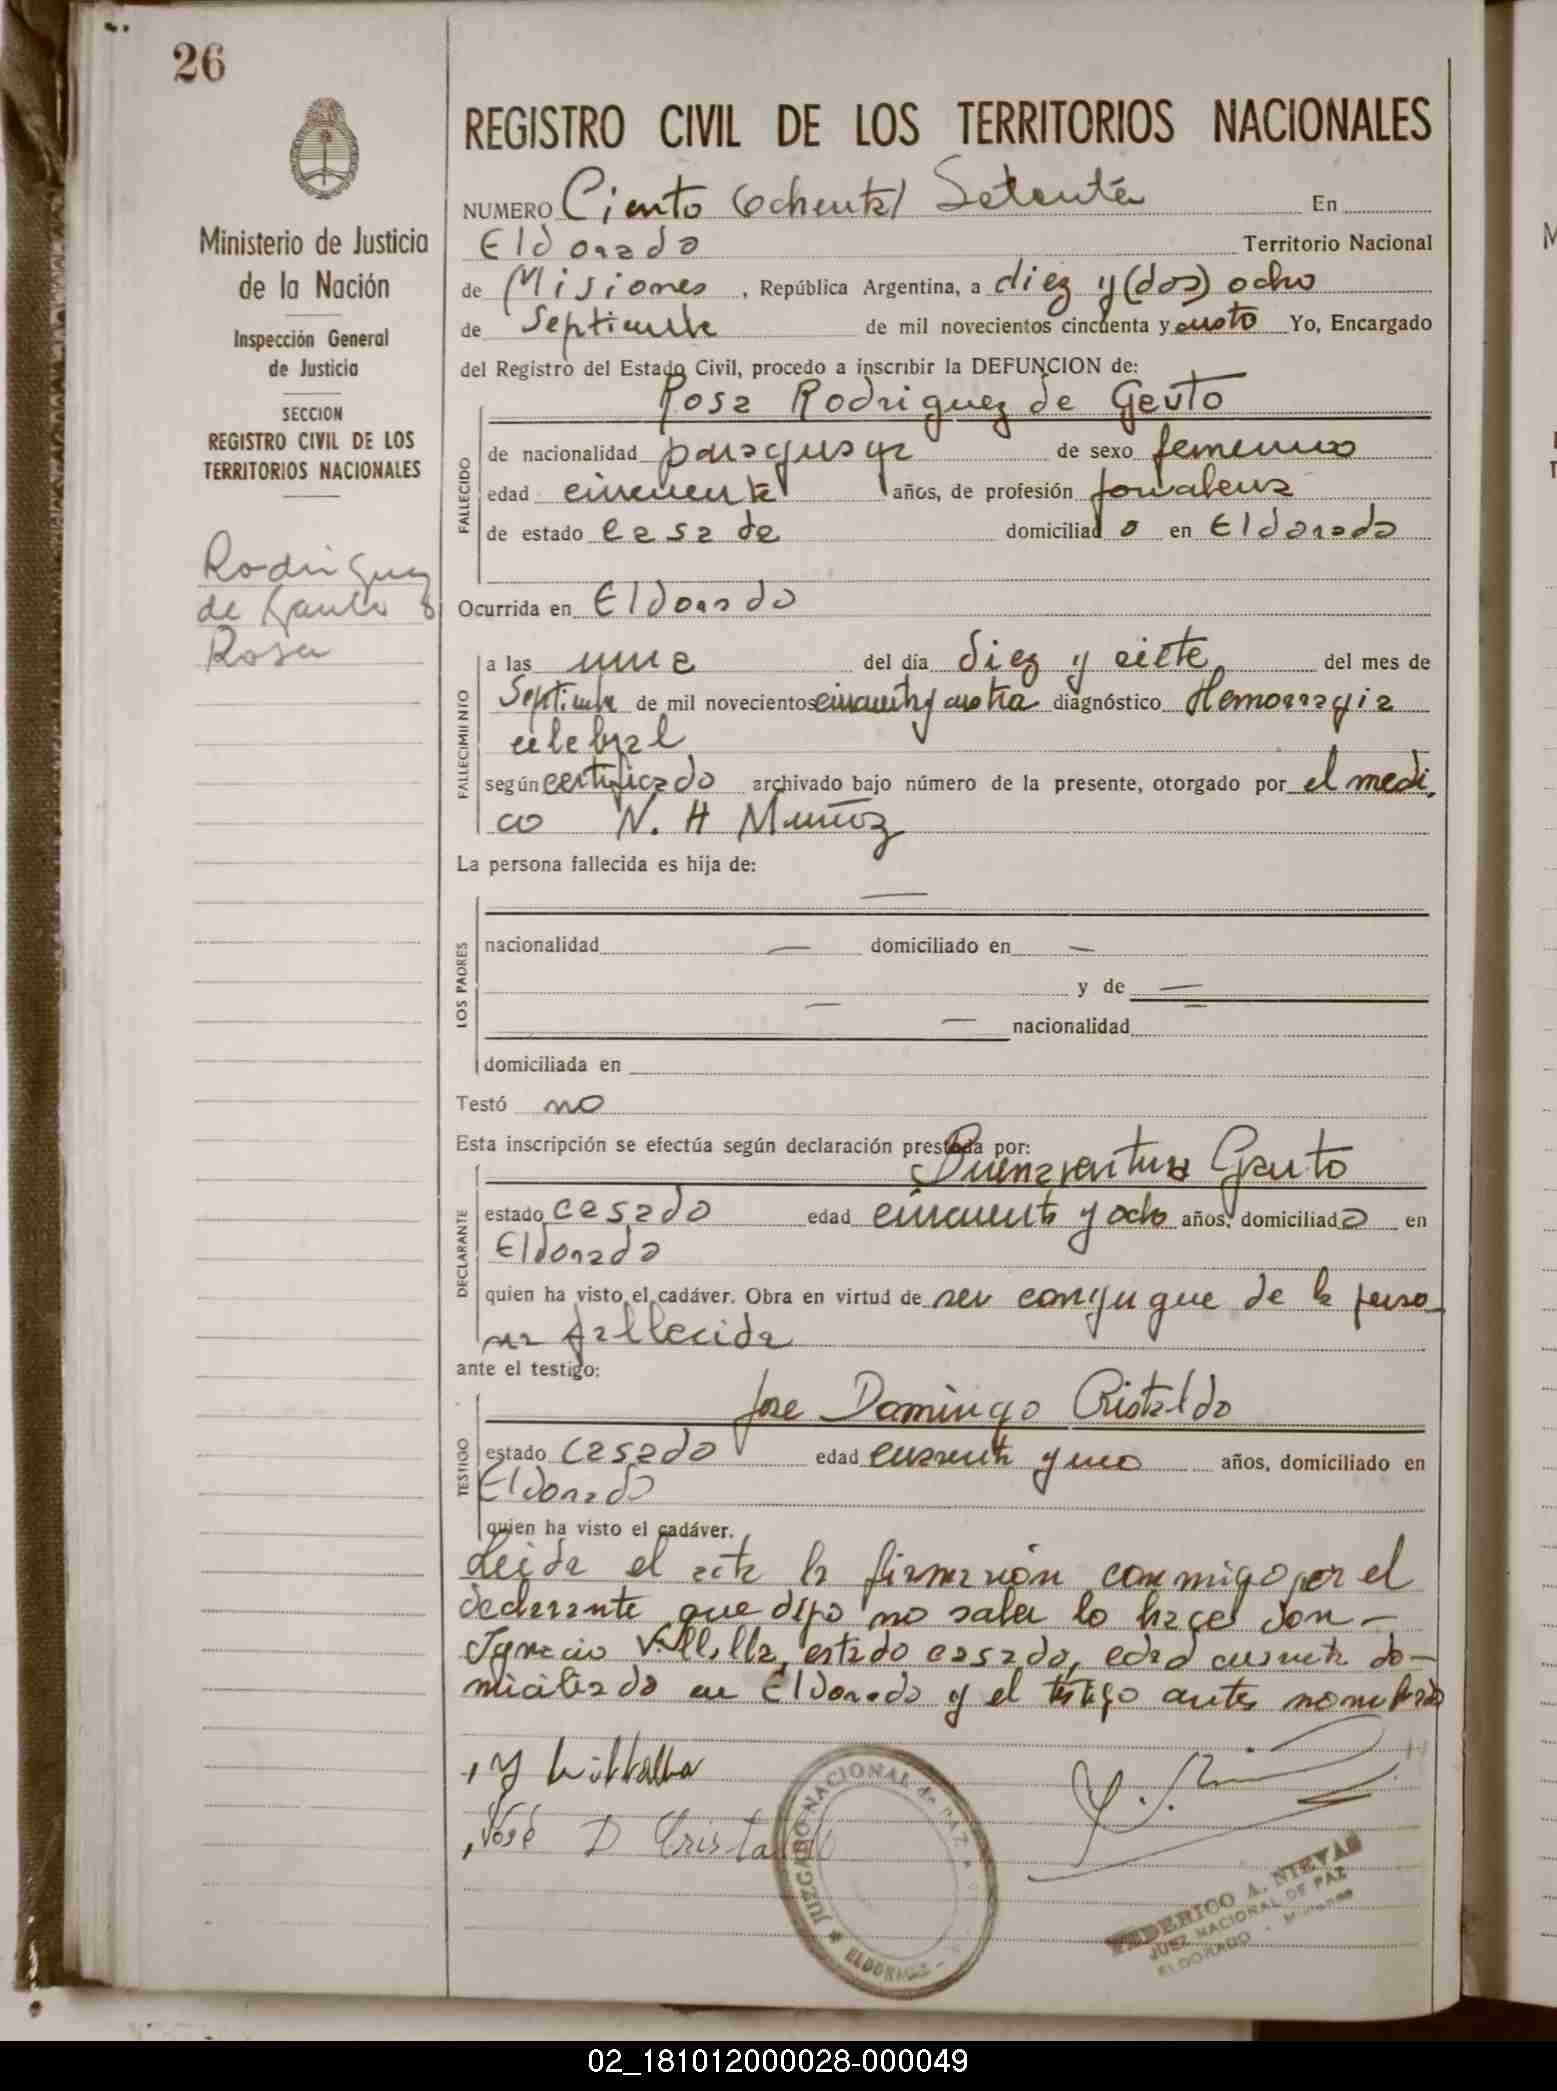 26
Ministerio de Justicia
de la Nación
Inspección General
de Justicia
SECCION
REGISTRO CIVIL DE LOS
TERRITORIOS NACIONALES
Rodriguez
de Gauto
Rosa
REGISTRO CIVIL DE LOS TERRITORIOS NACIONALES
NUMERO Ciento (ochenta) Setenta En
Eldorado Territorio Nacional
de Misiones, República Argentina, a diez y (dos) ocho
de Septiembre de mil novecientos cincuenta y cuatro Yo, Encargado
del Registro del Estado Civil, procedo a inscribir la DEFUNCION de:
Rosa Rodriguez de Gauto
FALLECIDO
de nacionalidad paraguaya de sexo femenino
edad cincuenta años, de profesión jornalera
de estado casada domiciliado en Eldorado
Ocurrida en Eldorado
FALLECIMIENTO
a las una del día diez y siete del mes de
Septiembre de mil novecientos cincuenta y cuatro diagnóstico Hemorragia
celebral
según certificado archivado bajo número de la presente, otorgado por el medi
co N. H Muñoz
La persona fallecida es hija de:
LOS PADRES
—
nacionalidad — domiciliado en —
y de —
— nacionalidad
domiciliada en
Testó no
Esta inscripción se efectúa según declaración prestada por:
Buenaventura Gauto
DECLARANTE
estado casado edad cincuenta y ocho años, domiciliado en
Eldorado
quien ha visto el cadáver. Obra en virtud de ser conyugue de la perso-
na fallecida
ante el testigo:
Jose Domingo Cristaldo
TESTIGO
estado casado edad cuarenta y uno años, domiciliado en
Eldorado
quien ha visto el cadáver.
Leida el acta la firmaron conmigo, por el
declarante que dijo no saber lo hace don -
Ignacio Villalba, estado casado, edad cuarenta do-
miciliado en Eldorado y el testigo antes nombrado
Y Villalba
José D Cristaldo
JUZGADO NACIONAL de PAZ
ELDORADO
FEDERICO A. NIEVAS
JUEZ NACIONAL DE PAZ
ELDORADO - Misiones
02_181012000028-000049